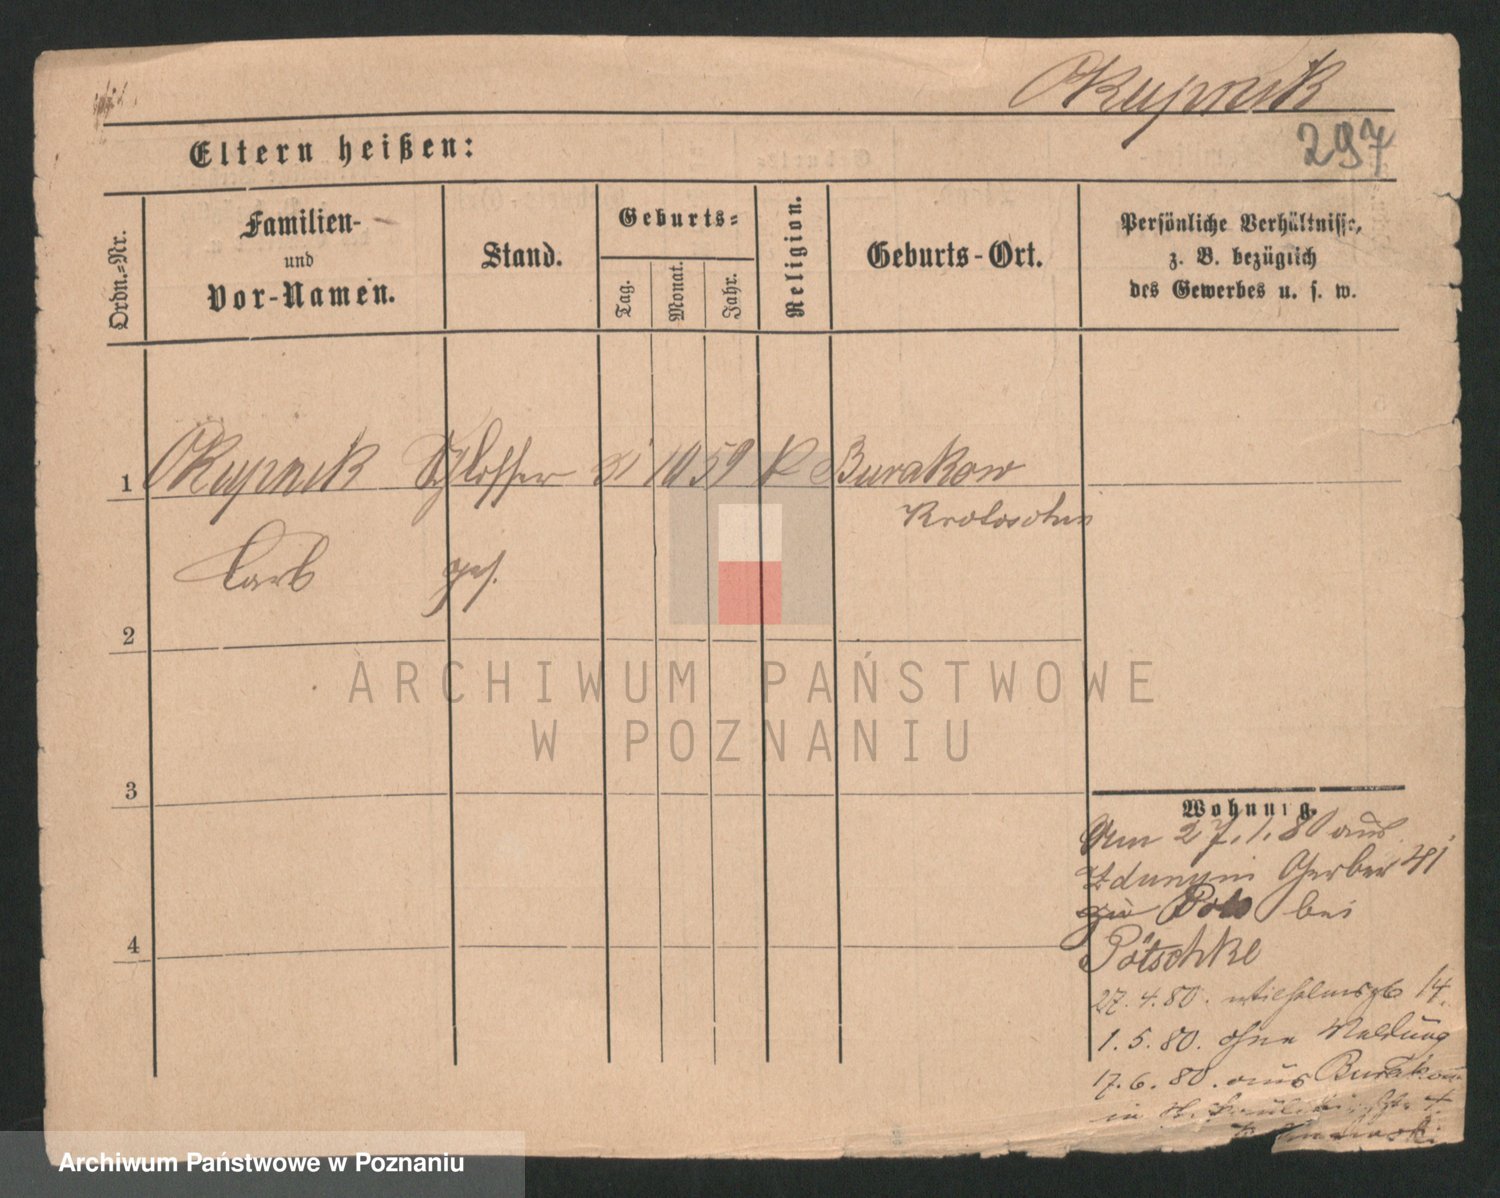 Okupnik
297
Eltern heißen:
Ordn.=Nr.
Familien-
und
Vor-Namen.
Stand.
Geburts=
Tag.
Monat.
Jahr.
Religion.
Geburts-Ort.
Persönliche Verhältnisse,
z. B. bezüglich
des Gewerbes u. s. w.
1 Okupnik Schlosser 21 10 59 K Burakow
Krotoschin
Carl ges.
2
ARCHIWUM PAŃSTWOWE
W POZNANIU
3
Wohnung.
Am 27.1.80 aus
Zduny in Gerber 41
zu bei
Pötschke
4
27.4.80. Wilhelmsplb 14.
1.5.80. ohne Meldung
17.6.80. aus Burakow
in
Archiwum Państwowe w Poznaniu